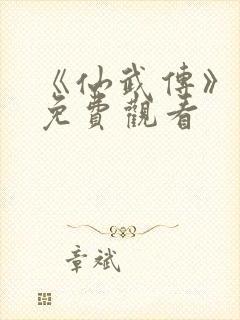 《仙武傳》
免費觀看
章斌